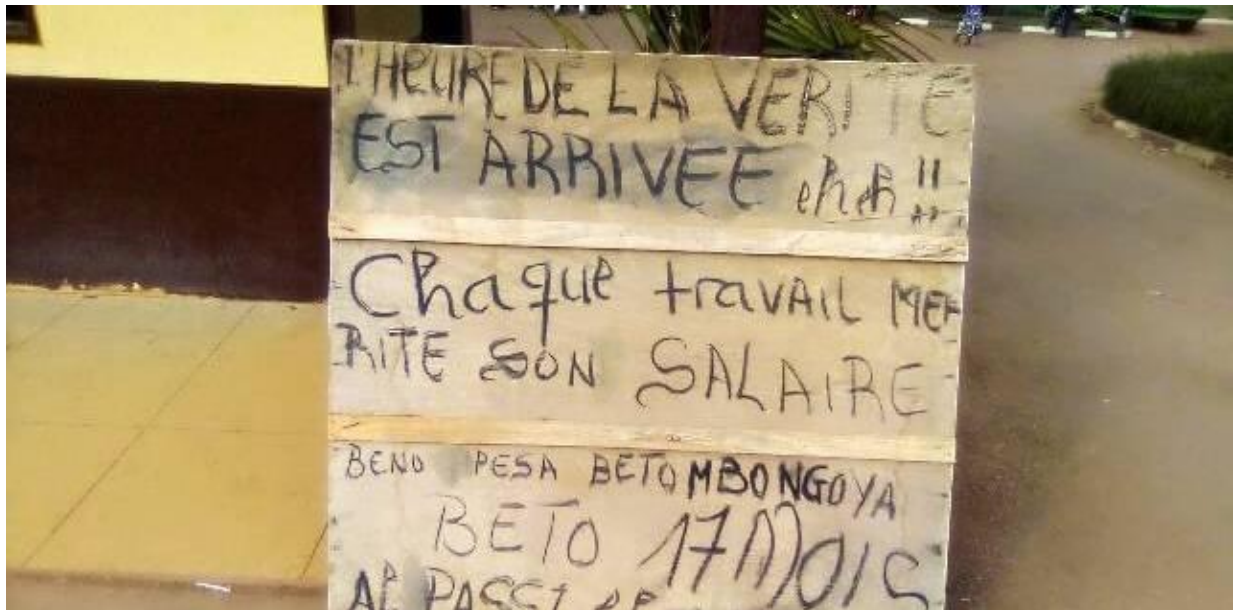 L'HEURE DE LA VERITE
EST ARRIVEE eheh !!
Chaque travail MEE
RITE SON SALAIRE
BENO PESA BETO MBONGO YA
BETO 17 MOIS